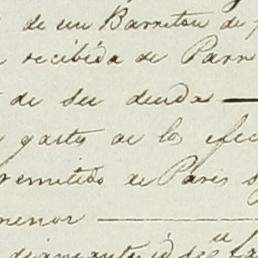 de un Barreton de
recibida de Parr
de su deuda
gasto de los efec
remitido de Paris
menor
diamante id